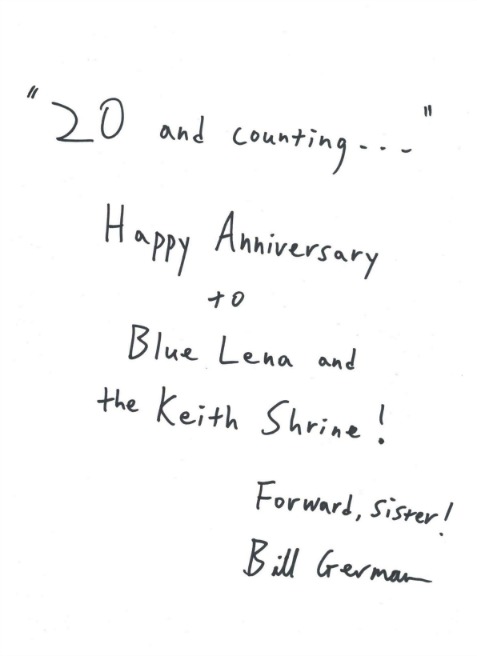 "20 and counting..."
Happy Anniversary
to
Blue Lena and
the Keith Shrine!
Forward, sister!
Bill German